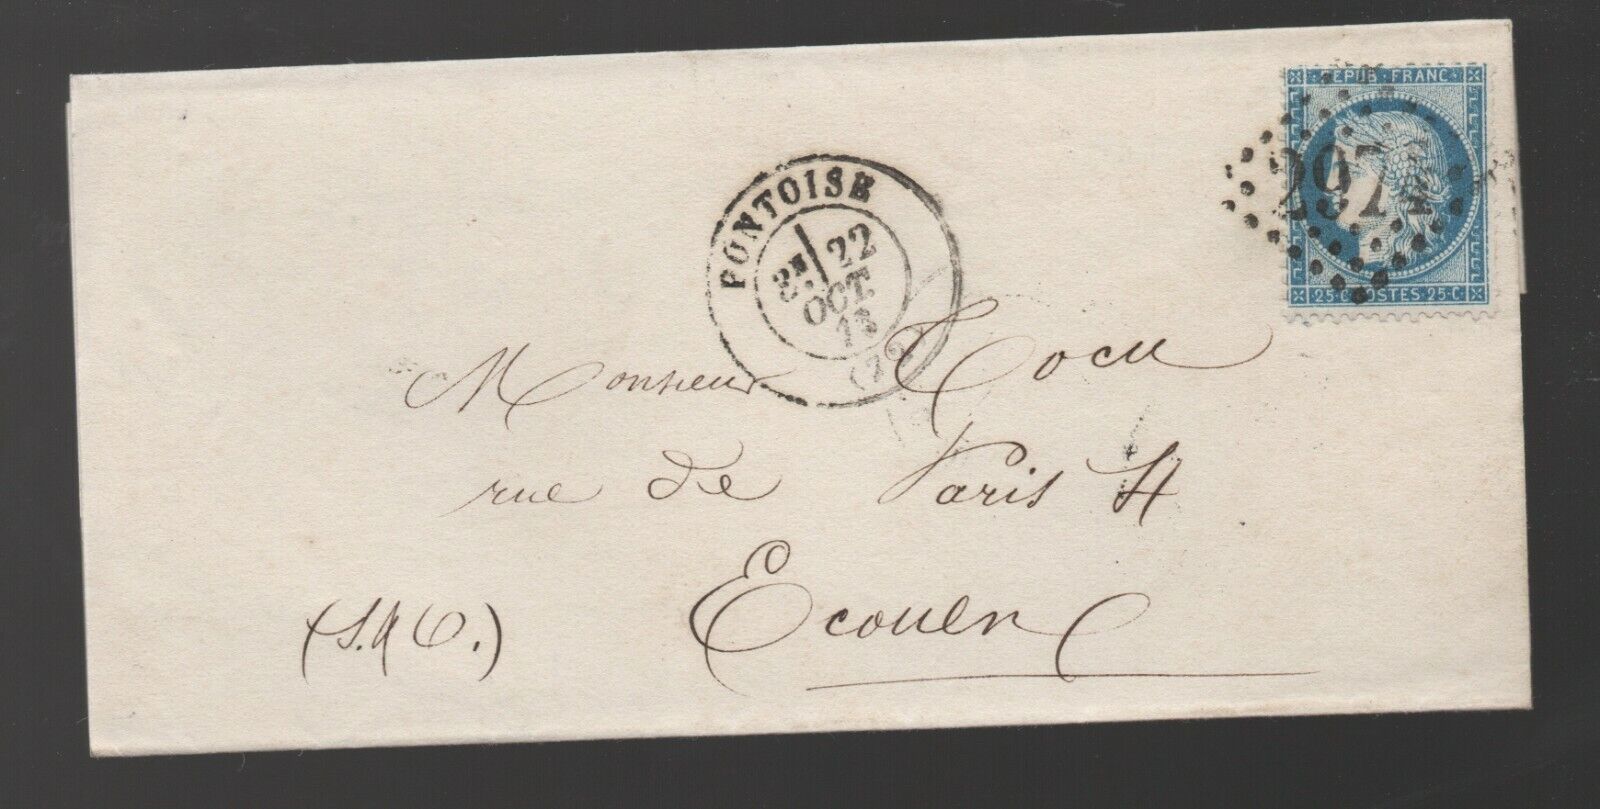 REPUB · FRANC
2974
25·C POSTES 25·C
PONTOISE
3E 22
OCT.
73
(72)
Monsieur Tocu
rue de Paris 4
Ecouen
(S. & O.)